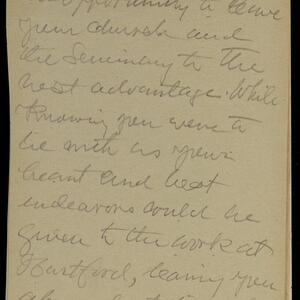 opportunity to leave
your church and
the Seminary to the
best advantage. While
Knowing you were to
be with us your
heart and best
endeavors could be
given to the work at
Hartford, leaving you